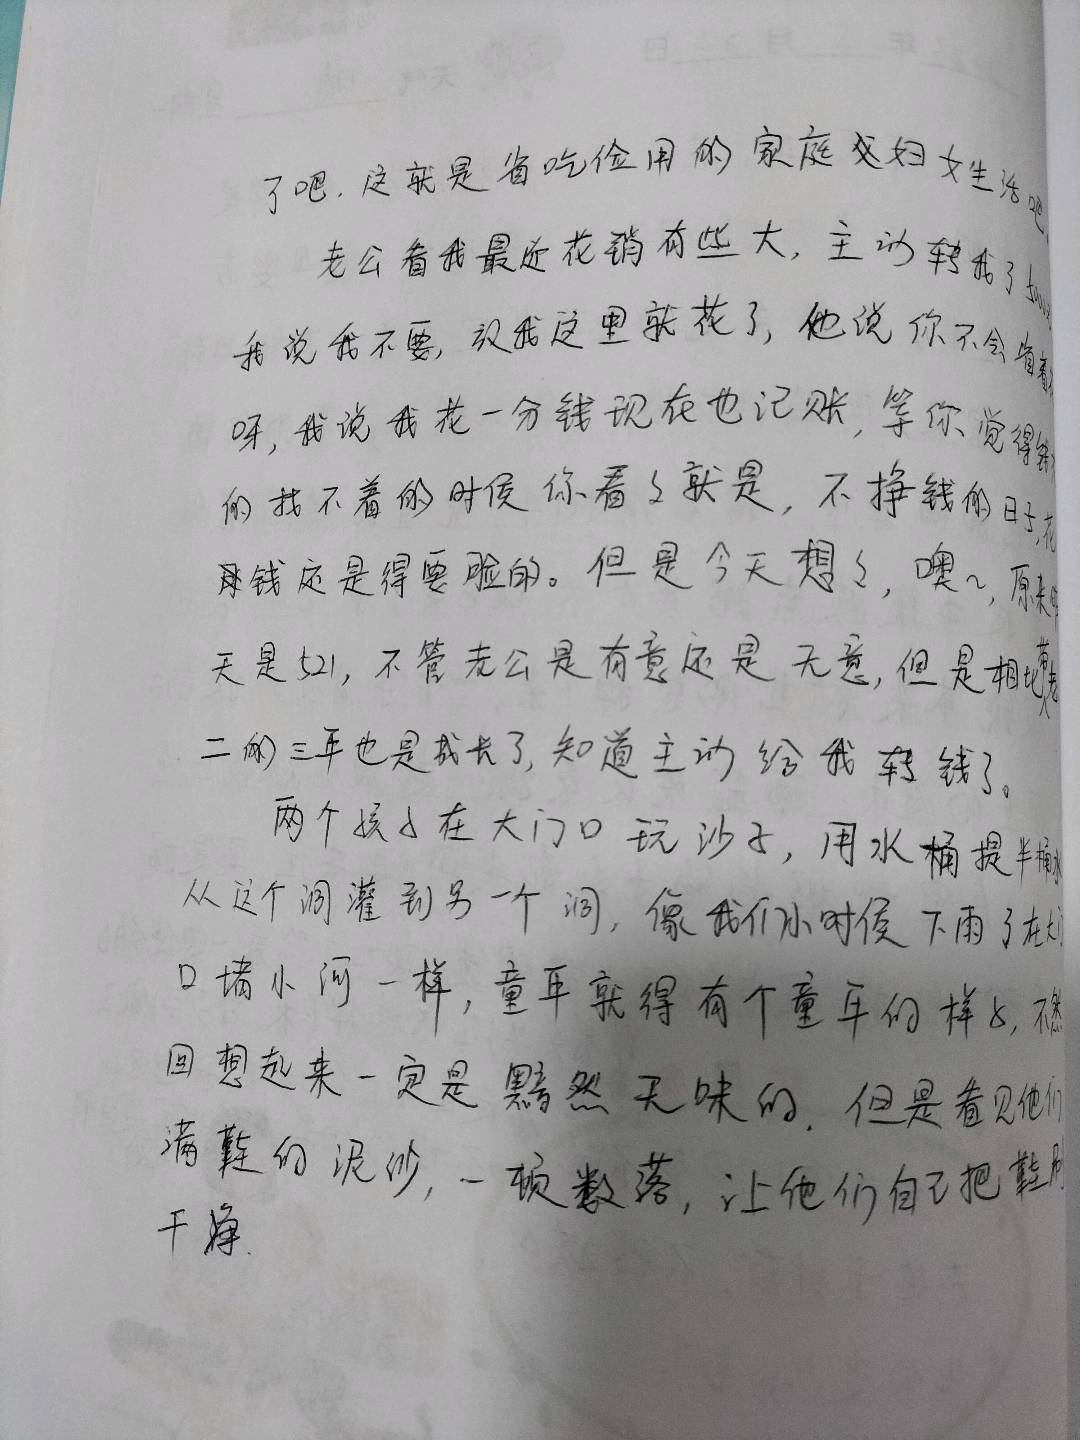 了吧.这就是省吃俭用的家庭妇女生活吧.
老公看我最近花销有些大,主动转我了
我说我不要,放我这里就花了,他说你不会省着
呀,我说我花一分钱现在也记账,等你觉得钱
的找不着的时候你看看就是,不挣钱的日子,花
钱还是得要脸的。但是今天想想,噢~,原来昨
天是521,不管老公是有意还是无意,但是相比
二的三年也是成长了,知道主动给我转钱了。
两个孩子在大门口玩沙子,用水桶提半桶水
从这个洞灌到另一个洞,像我们小时候下雨了在大门
口堵小河一样,童年就得有个童年的样子,不然
回想起来一定是黯然无味的.但是看见他们
满鞋的泥沙,一顿数落,让他们自己把鞋刷
干净.